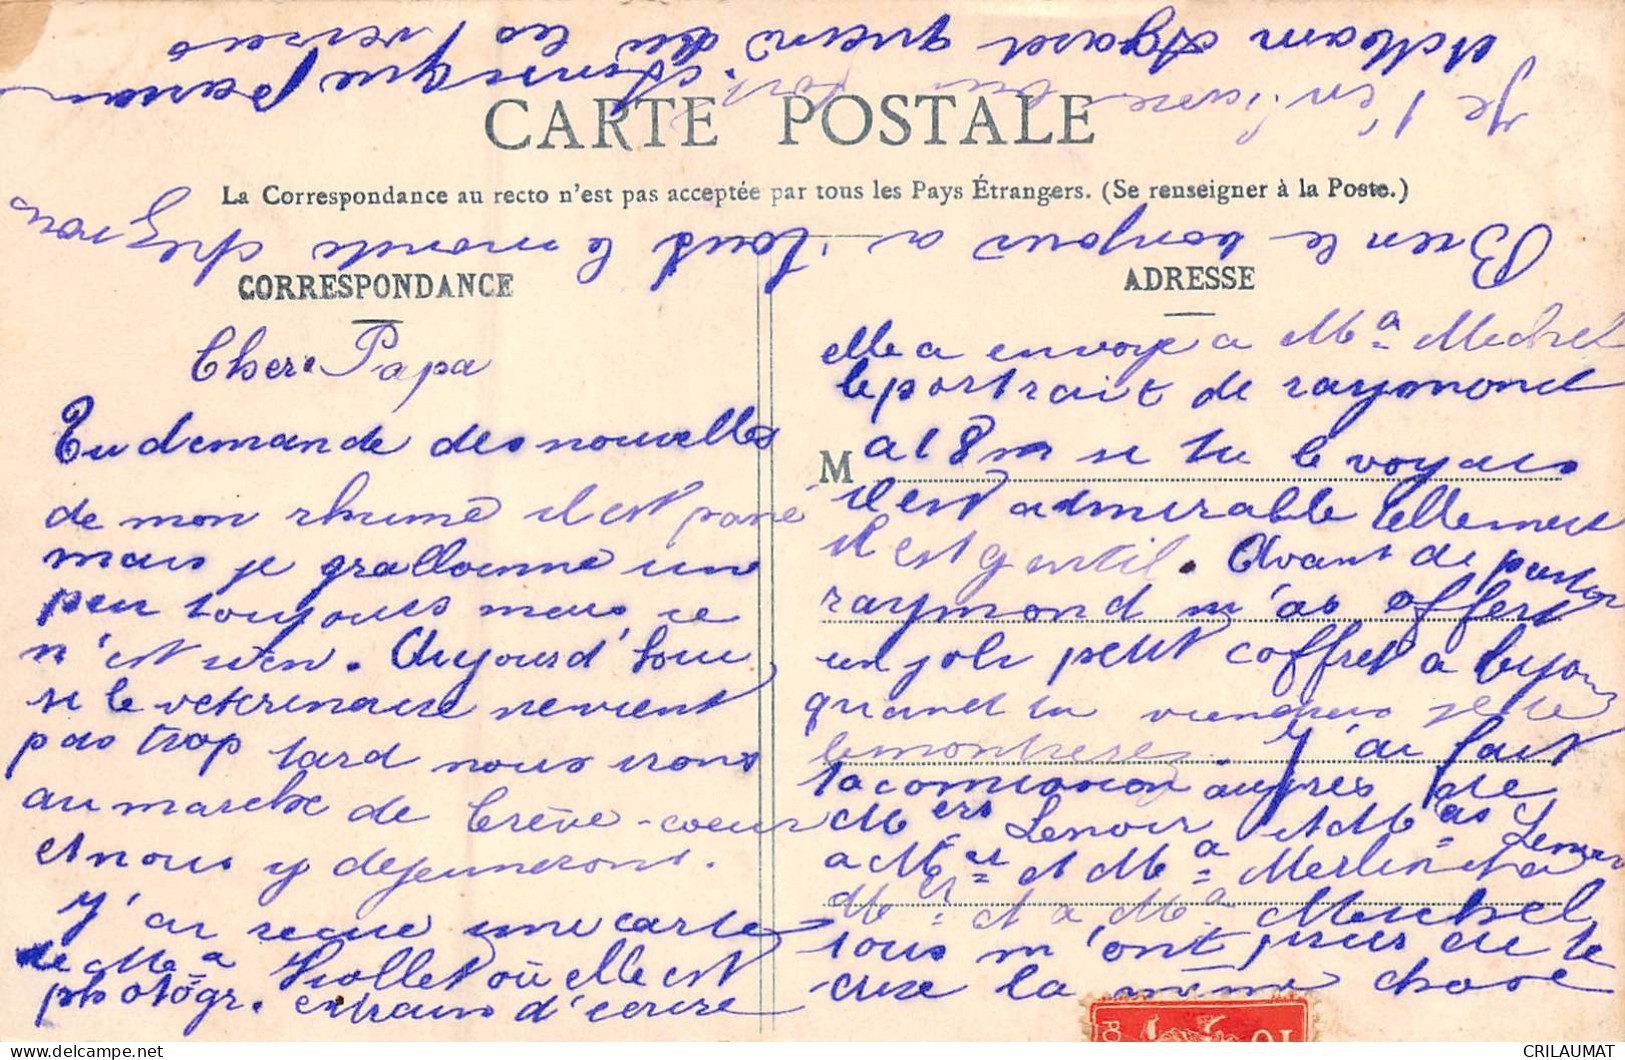 CARTE POSTALE
La Correspondance au recto n'est pas acceptée par tous les Pays Étrangers. (Se renseigner à la Poste.)
CORRESPONDANCE
Cher Papa
Tu demande des nouvelles
de mon rhume il est passé
mais je graillonne un
peu toujours mais ce
n'est rien. Aujourd'hui
si le veterinaire revient
pas trop tard nous irons
au marche de Crève-coeur
et nous y dejeunerons.
J'ai recue une carte
de Ma Triollet où elle est
photogr. entrain d'ecrire
ADRESSE
M
elle a envoye a Ma Michel
le portrait de raymond
a 18 m si tu le voyais
il est admirable tellement
il est gentil. Avant de partir
raymond m'as offert
un joli petit coffret a bijoux
quand tu viendras je te
le montrerez. J'ai fait
ta comission aupres de
Mers Lenoir et Mas Lenoir
a Mer et Ma Merlin et a
Mer et a Ma Michel
tous m'ont priés de te
dire la même chose
Bien le bonjour a tout le monde chez nous
et Mam Agasel quand
10
CRILAUMAT